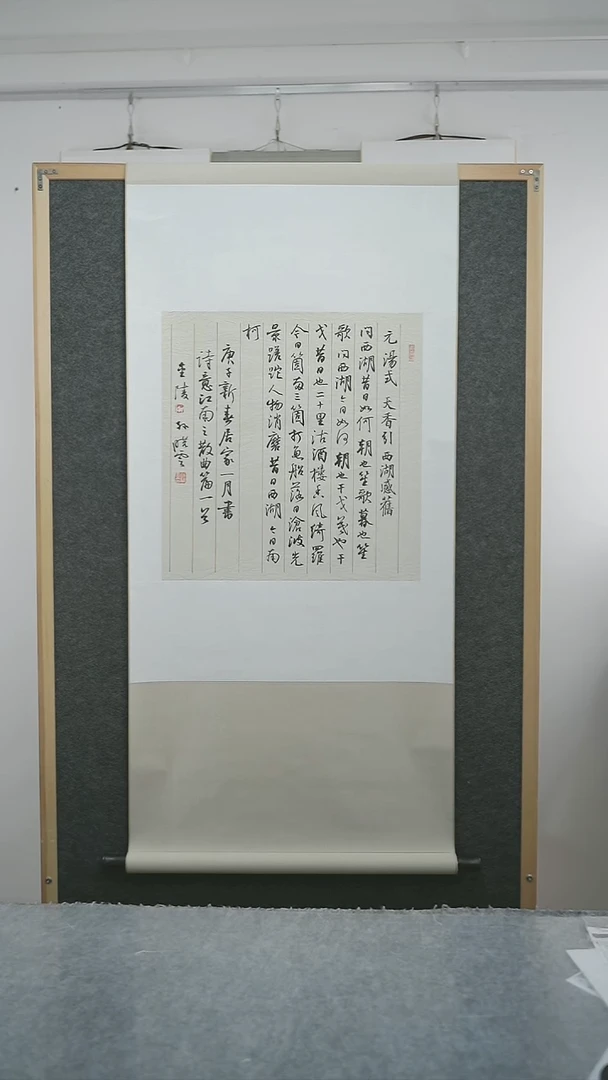 元湯式 天香引 西湖感舊
问西湖昔日如何朝也笙歌暮也笙
歌问西湖今日如何朝也干戈暮也干
戈昔日也二十里沽酒楼香风绮羅
今日箇两三箇打鱼船落日滄波光
景蹉跎人物消磨昔日西湖今日南
柯
庚子新春居家一月書
詩意江南之散曲篇一
金陵 孙晓雲